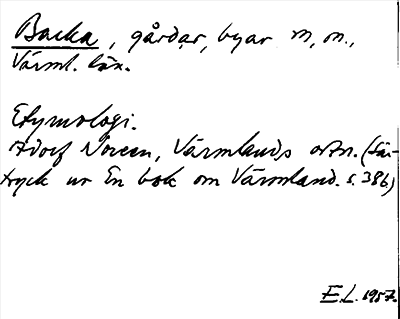 Backa, gårdar, byar m, m.,
Värml. län.
Etymologi.
Adolf Noreen, Värmlands ortn. (Sär-
tryck ur En bok om Värmland. s. 386)
E.L. 1957.